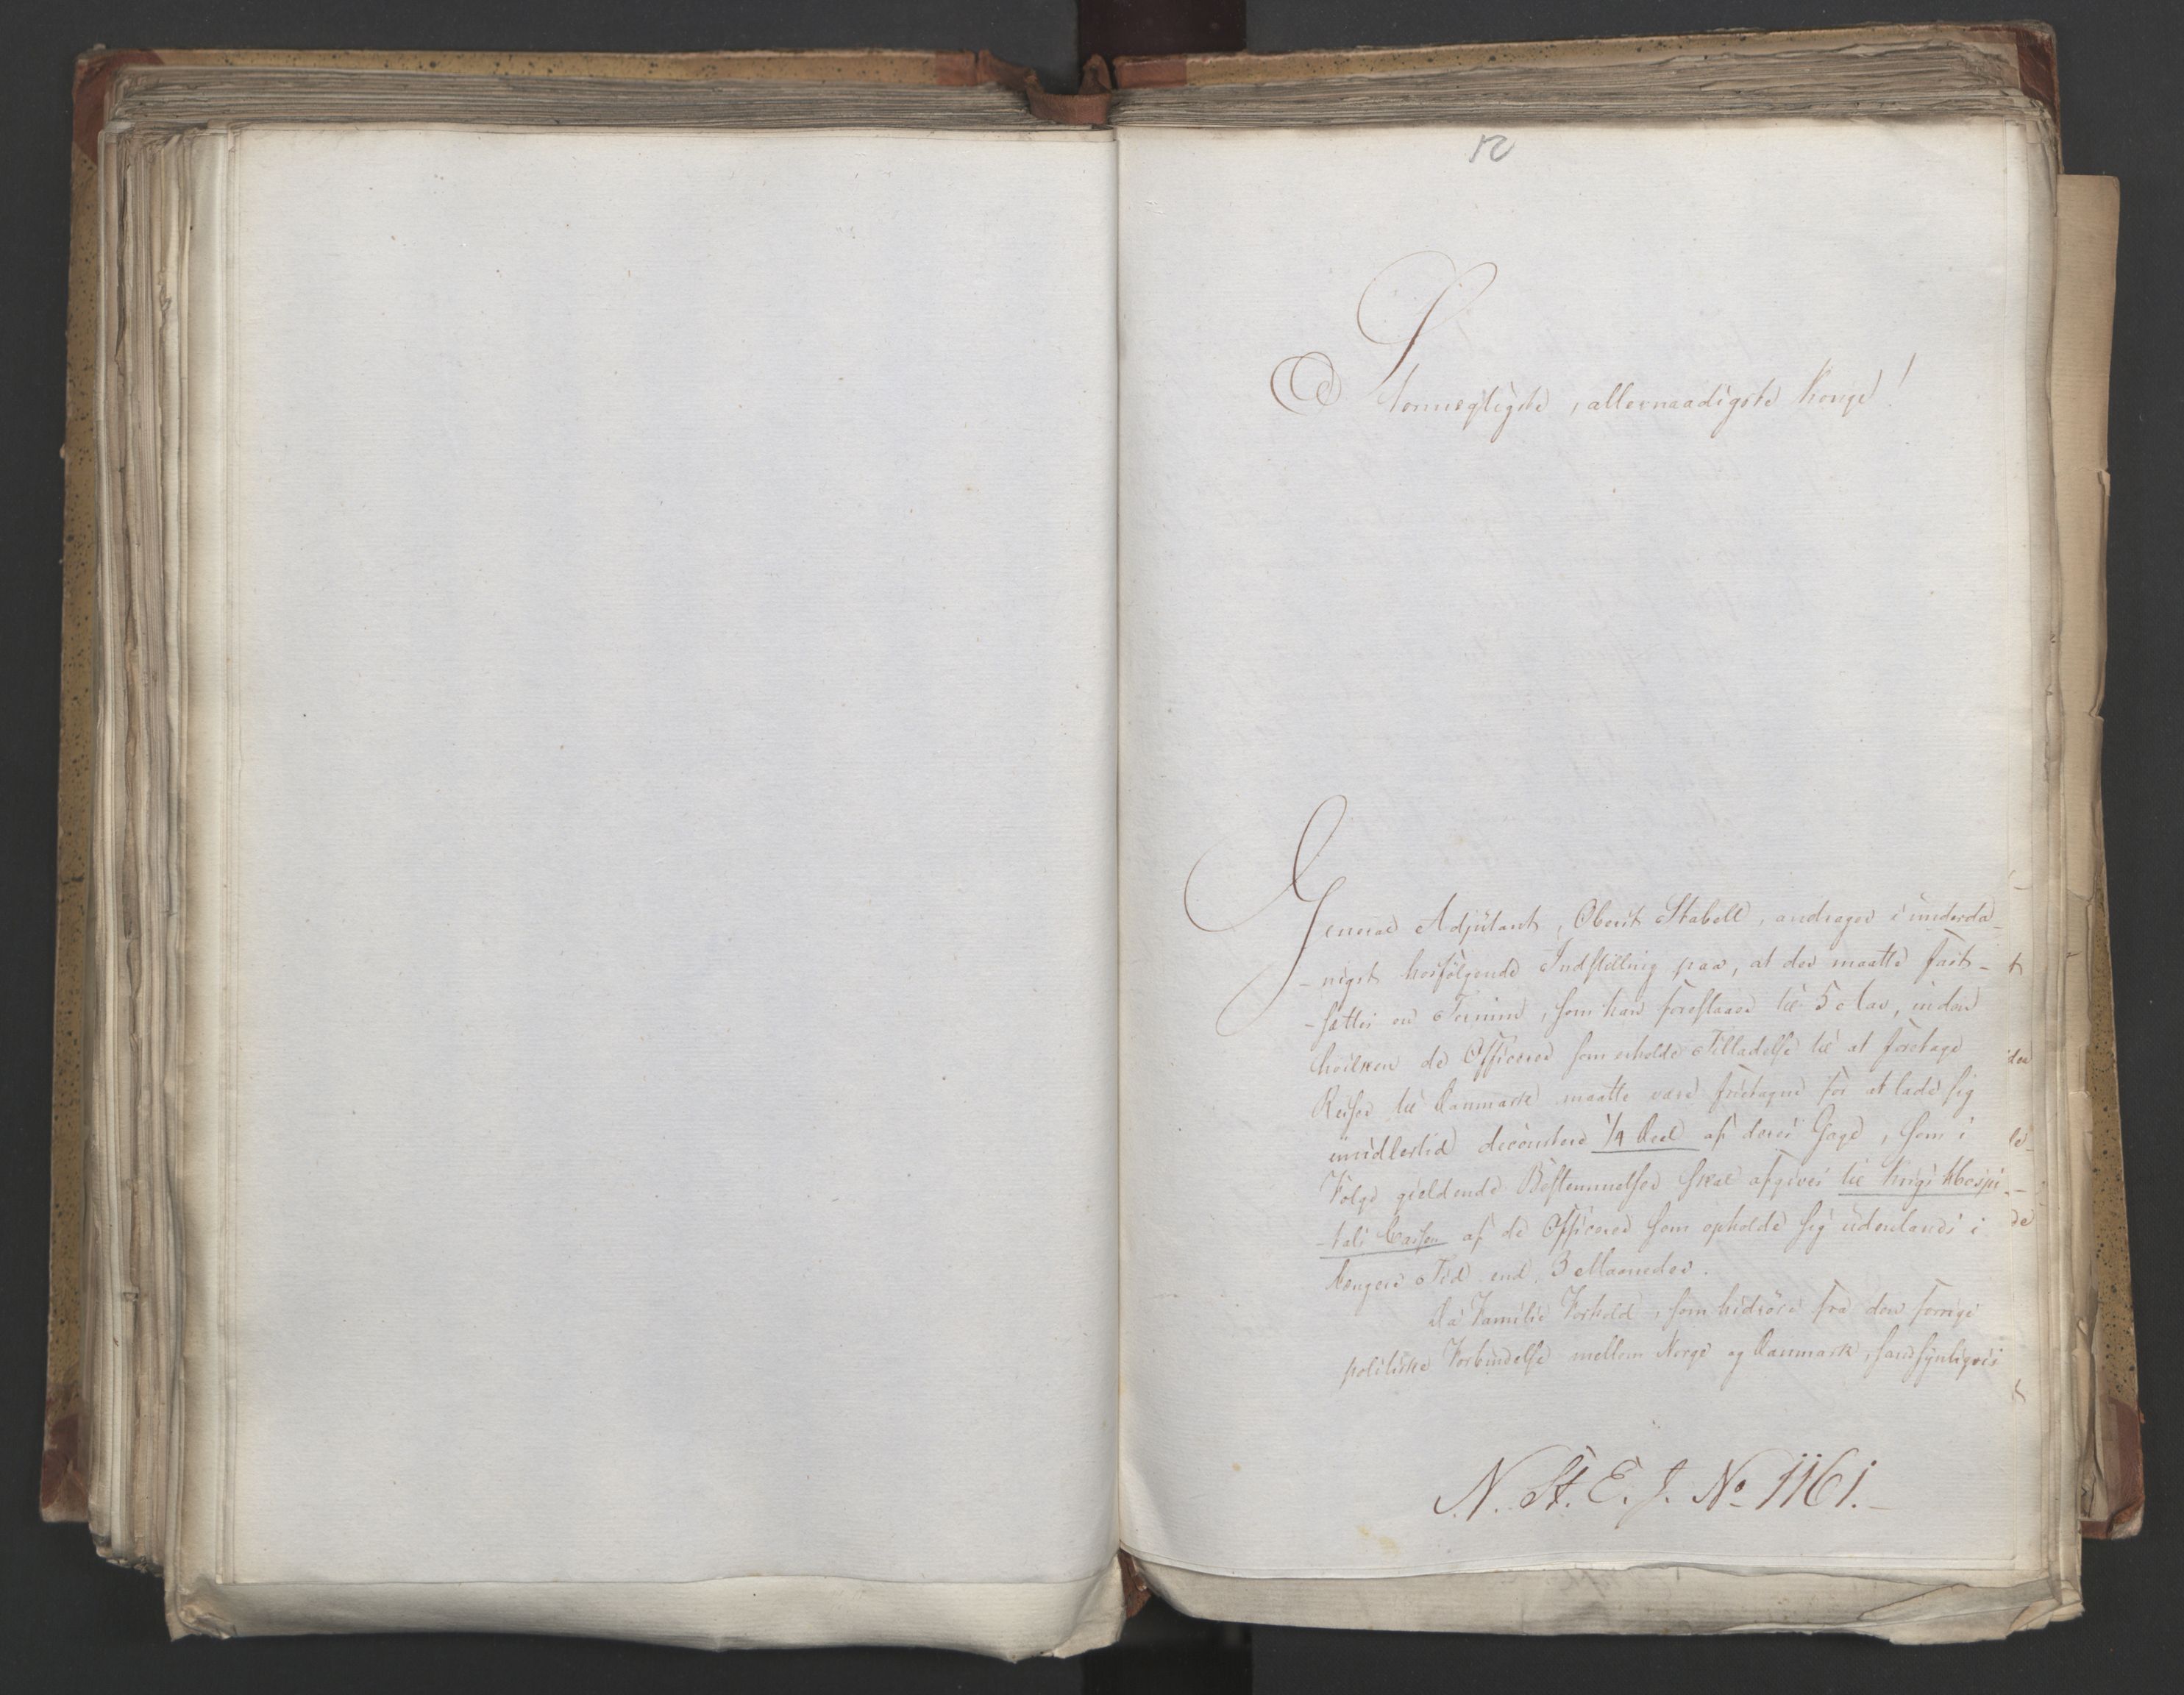 12
Stormægtigste, allernaadigste Konge!
General Adjütant, Oberst Stabell, andrager i ünderda-
-nigst hosfölgende Indstilling paa, at der maatte fast-
-sættes en Termin, som han foreslaaer til 5 Aar, inden
hvilken de Officerer som erholde Tilladelse til at foretage
Reiser til Danmark maatte være fritagne for at lade sig
imidlertid decourtere 1/4 Deel af deres Gage, som i
Fölge gieldende Bestemmelser skal afgives til Krigs Hospi-
-tals Cassen af de Officerer som opholde sig üdenlands i
længere Tid end 3 Maaneder.
Da Familie Forhold, som hidröre fra den forrige
politiske Forbindelse mellem Norge og Danmark, sandsynligviis
N. St. E. J. No 1161.-